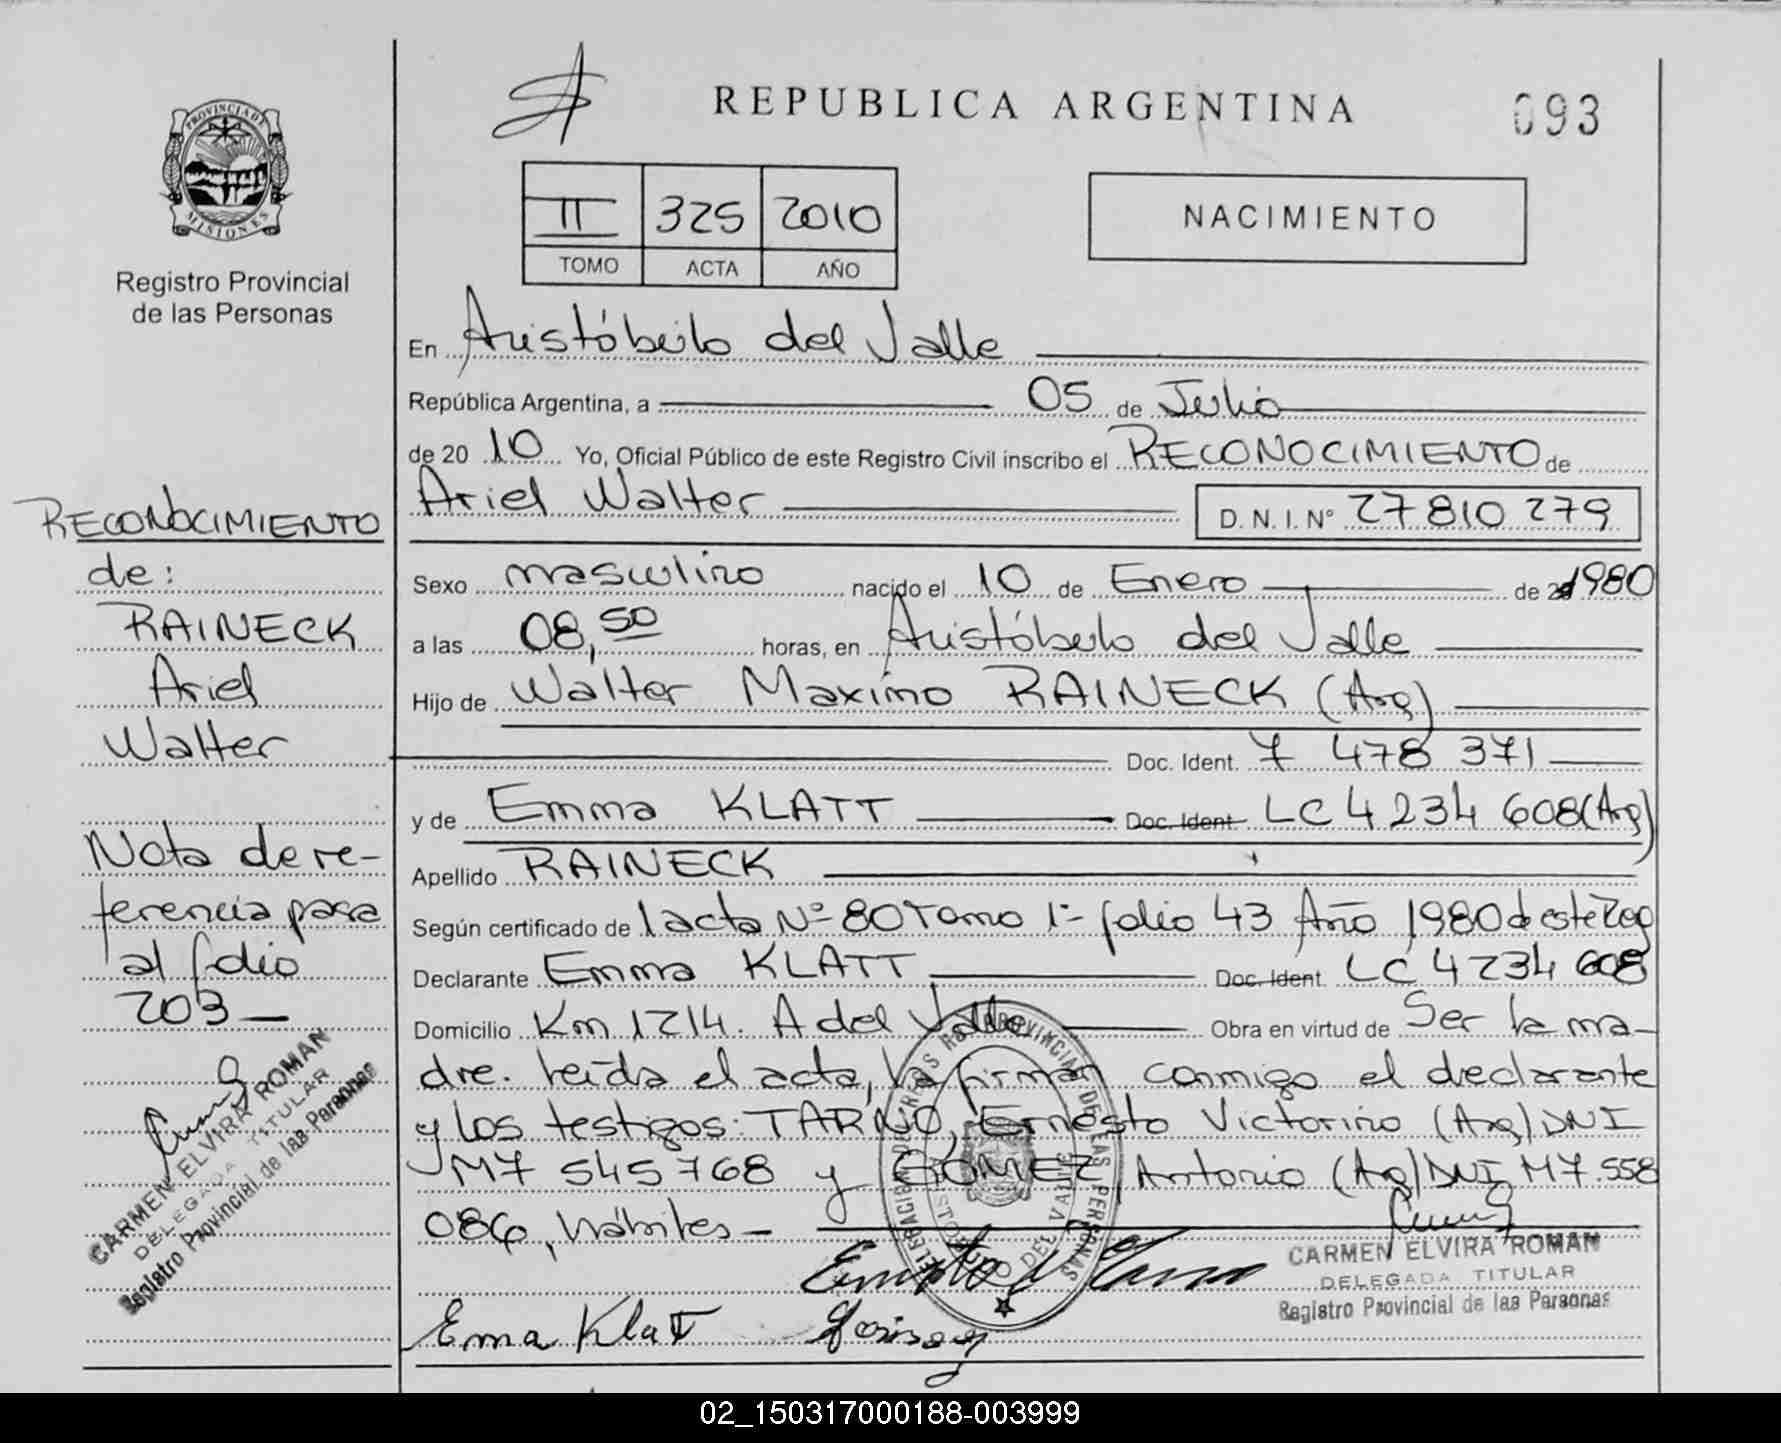 REPUBLICA ARGENTINA
093
PROVINCIA DE
MISIONES
Registro Provincial
de las Personas
II 325 2010
TOMO ACTA AÑO
NACIMIENTO
En Aristóbulo del Valle
República Argentina, a 05 de Julio
de 20 10 Yo, Oficial Público de este Registro Civil inscribo el RECONOCIMIENTO de
Ariel Walter D.N.I. N° 27 810 279
Sexo masculino nacido el 10 de Enero de 1980
a las 08,50 horas, en Aristóbulo del Valle
Hijo de Walter Maximo RAINECK (Arg)
Doc. Ident. 7 478 371
y de Emma KLATT Doc. Ident LC 4 234 608 (Arg)
Apellido RAINECK
Según certificado de 1 acta Nº 80 Tomo 1º folio 43 Año 1980 de este Reg
Declarante Emma KLATT Doc. Ident LC 4 234 608
Domicilio Km 1214. A del Valle Obra en virtud de Ser la ma-
dre. leída el acta, la firman conmigo el declarante
y los testigos: TARNO, Ernesto Victorino (Arg) DNI
M7 545 768 y GOMEZ Antonio (Arg) DNI M7.558
086, hábiles -
CARMEN ELVIRA ROMAN
DELEGADA TITULAR
Registro Provincial de las Personas
Ema Klat
RECONOCIMIENTO
de:
RAINECK
Ariel
Walter
Nota de re-
ferencia pasa
al folio
203 -
CARMEN ELVIRA ROMAN
DELEGADA TITULAR
Registro Provincial de las Personas
02_150317000188-003999